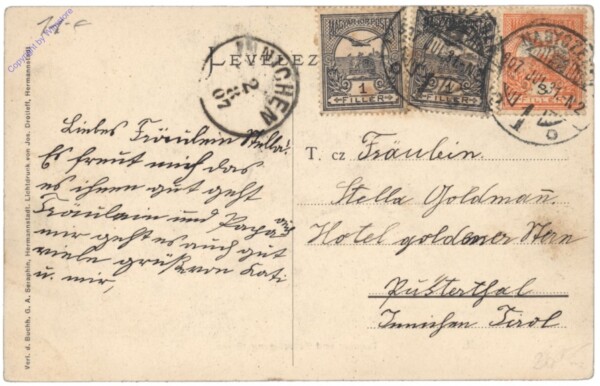 11.-
Copyright by
LEVELEZ
MAGYAR KIR. POSTA
1
FILLER
FILLER
FILLER
NAGYCZENK
907
INNICHEN
2
07
Liebes Fräulein Stella!
Es freut mich das
es ihnen gut geht
Fräulein und Papa auch
mir geht es auch gut
viele grüße von Kati
u. mir,
T. cz Fräulein
Stella Goldman̄.
Hotel goldener Stern
Pusterthal
Innichen Tirol
Verl. d. Buchh. G. A. Seraphin, Hermannstadt. Lichtdruck von Jos. Drotleff, Hermannstadt.